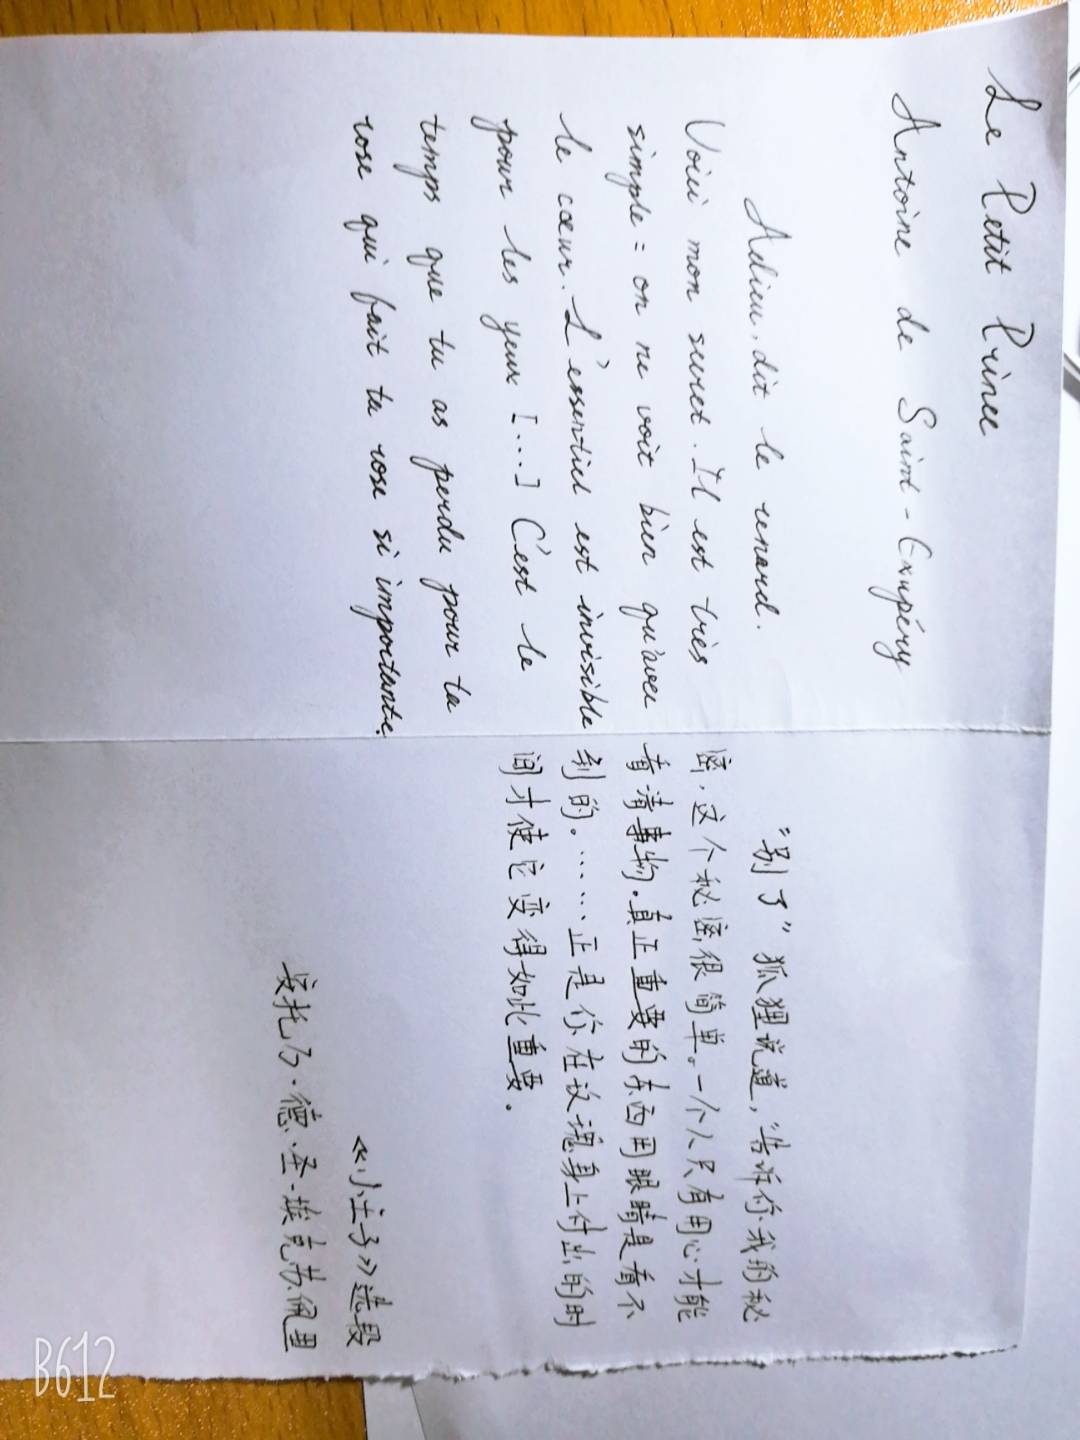 Le Petit Prince
Antoine de Saint-Exupéry
Adieu, dit le renard.
Voici mon secret. Il est très
simple = on ne voit bien qu'avec
le cœur. L'essentiel est invisible
pour les yeux [....] C'est le
temps que tu as perdu pour ta
rose qui fait ta rose si importante.
"别了"狐狸说道,"告诉你我的秘
密,这个秘密很简单。一个人只有用心才能
看清事物.真正重要的东西用眼睛是看不
到的。……正是你在玫瑰身上付出的时
间才使它变得如此重要.
《小王子》选段
安托万·德·圣-埃克苏佩里
B612